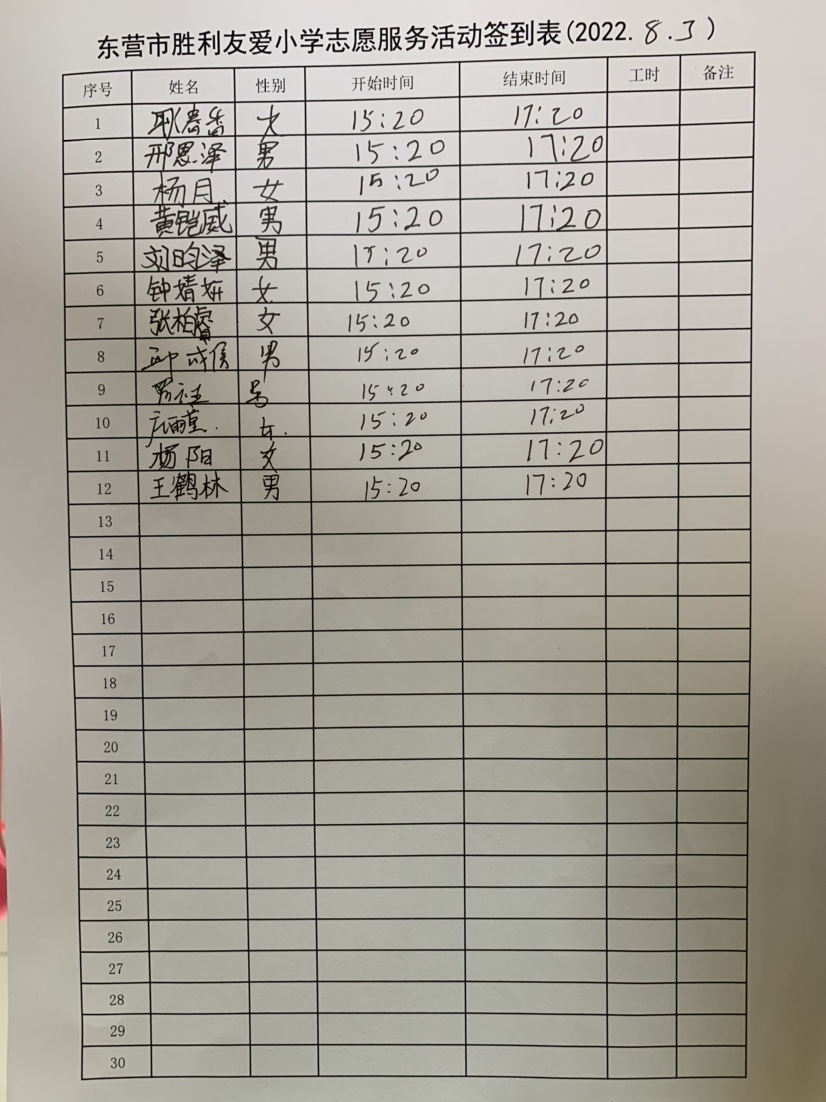 东营市胜利友爱小学志愿服务活动签到表(2022.8.3)
序号 姓名 性别 开始时间 结束时间 工时 备注
1 耿春香 女 15:20 17:20
2 邢恩泽 男 15:20 17:20
3 杨月 女 15:20 17:20
4 黄铠威 男 15:20 17:20
5 刘昀泽 男 15:20 17:20
6 钟婧妍 女 15:20 17:20
7 张柏睿 女 15:20 17:20
8 男 15:20 17:20
9 男 15:20 17:20
10 女 15:20 17:20
11 杨阳 女 15:20 17:20
12 王鹤林 男 15:20 17:20
13
14
15
16
17
18
19
20
21
22
23
24
25
26
27
28
29
30